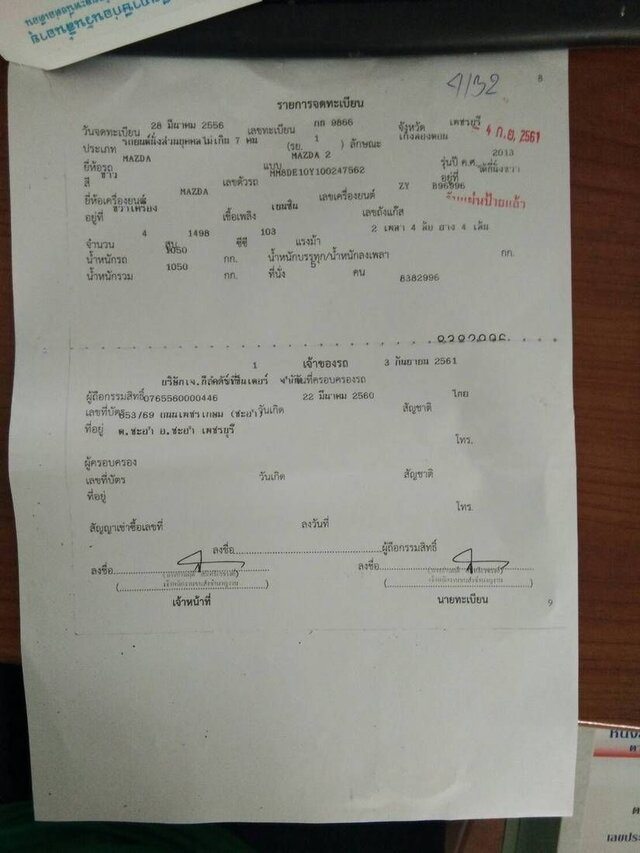 4132
8
รายการจดทะเบียน
วันจดทะเบียน 28 มีนาคม 2556 เลขทะเบียน กก 9866 จังหวัด เพชรบุรี
4 ก.ย. 2561
ประเภท รถยนต์นั่งส่วนบุคคลไม่เกิน 7 คน (รย. 1 ) ลักษณะ เก๋งสองตอน
ยี่ห้อรถ MAZDA แบบ MAZDA 2 รุ่นปี ค.ศ. 2013
สี ขาว เลขตัวรถ MM8DE10Y100247562 อยู่ที่
ยี่ห้อเครื่องยนต์ MAZDA เลขเครื่องยนต์ ZY 896996
แผ่นป้ายแล้ว
อยู่ที่ ขวาเครื่อง เชื้อเพลิง เบนซิน เลขถังแก๊ส
จำนวน 4 สูบ 1498 ซีซี 103 แรงม้า 2 เพลา 4 ล้อ ยาง 4 เส้น
น้ำหนักรถ 1050 กก. น้ำหนักบรรทุก/น้ำหนักลงเพลา กก.
น้ำหนักรวม 1050 กก. ที่นั่ง 5 คน 8382996
1 เจ้าของรถ 3 กันยายน 2561
ผู้ถือกรรมสิทธิ์ วันที่ครอบครองรถ
เลขที่บัตร 0765560000446 วันเกิด 22 มีนาคม 2560 สัญชาติ ไทย
ที่อยู่ 853/69 ถนนเพชรเกษม (ชะอำ)
ต.ชะอำ อ.ชะอำ เพชรบุรี โทร.
ผู้ครอบครอง
เลขที่บัตร วันเกิด สัญชาติ
ที่อยู่
โทร.
สัญญาเช่าซื้อเลขที่ ลงวันที่
ลงชื่อ ผู้ถือกรรมสิทธิ์
ลงชื่อ ลงชื่อ
เจ้าหน้าที่ นายทะเบียน
9